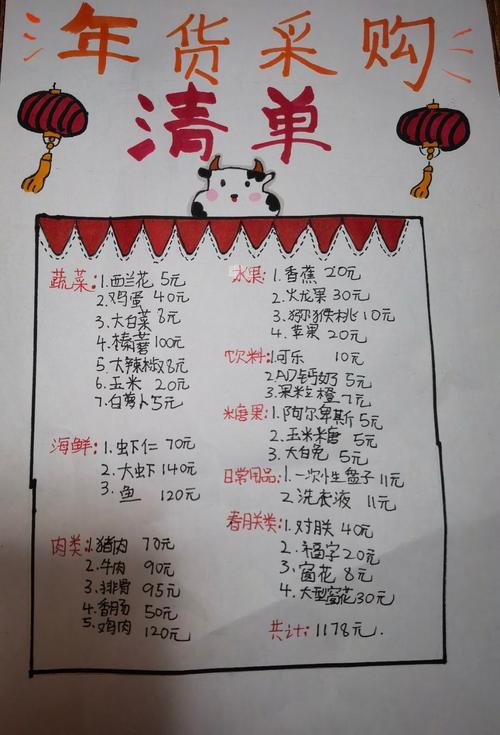 年货采购
清单
蔬菜:1.西兰花 5元
2.鸡蛋 40元
3.大白菜 8元
4.榛蘑 100元
5.大辣椒 8元
6.玉米 20元
7.白萝卜 5元
海鲜:1.虾仁 70元
2.大虾 140元
3.鱼 120元
肉类:1.猪肉 70元
2.牛肉 90元
3.排骨 95元
4.香肠 50元
5.鸡肉 120元
水果:1.香蕉 20元
2.火龙果 30元
3.猕猴桃 10元
4.苹果 20元
饮料:1.可乐 10元
2.AD钙奶 5元
3.果粒橙 7元
糖果:1.阿尔卑斯 5元
2.玉米糖 5元
3.大白兔 5元
日常用品:1.一次性盘子 11元
2.洗衣液 11元
春联类:1.对联 40元
2.福字 20元
3.窗花 8元
4.大型窗花 30元
共计:1178元.